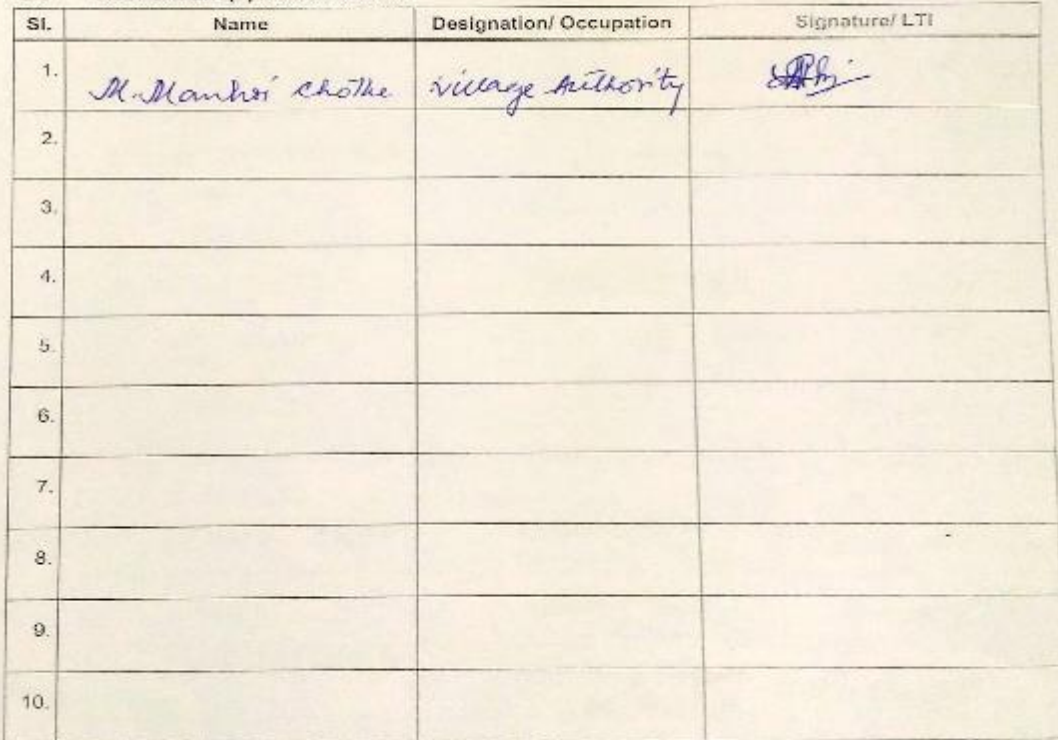 Sl. Name Designation/ Occupation Signature/ LTI
1. M. Manhoi Chothe Village Authority
2.
3.
4.
5.
6.
7.
8.
9.
10.